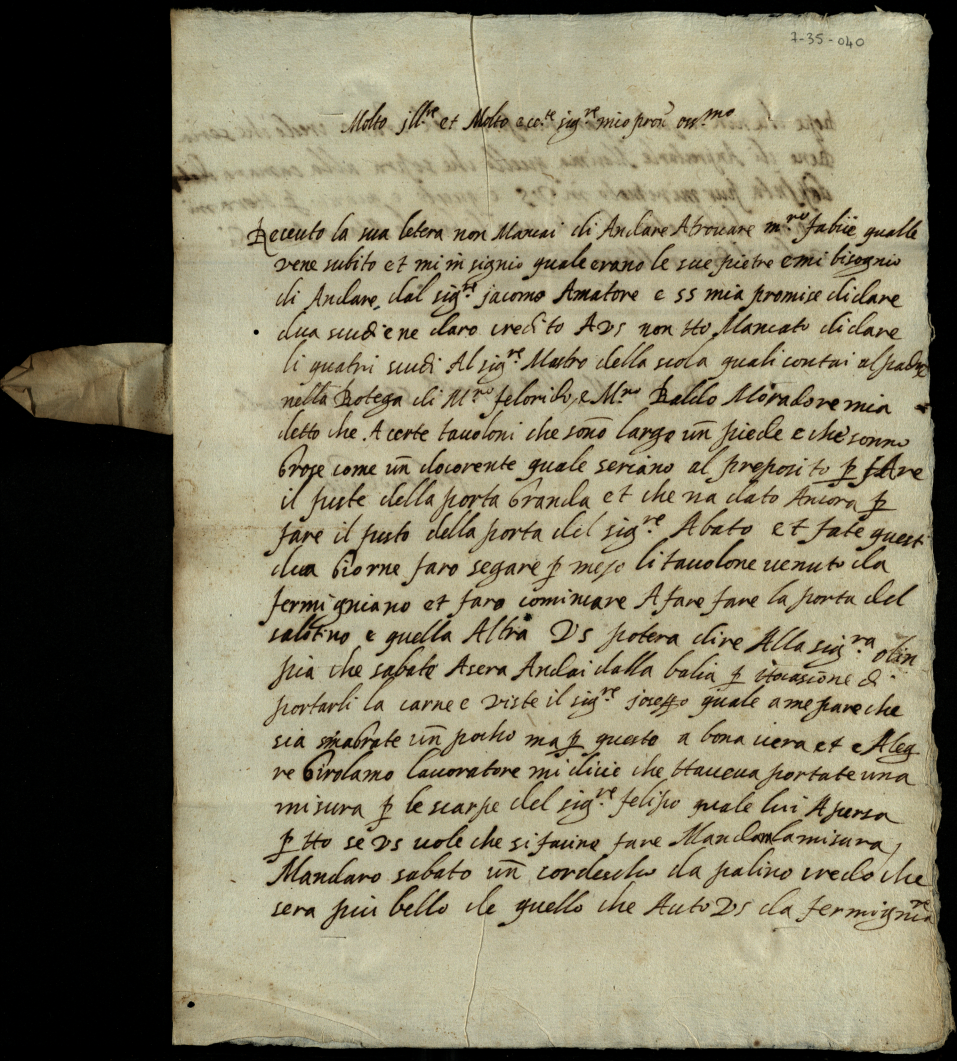 7-35-040
Molto jll.re et Molto ecc.te sig.re mio pron oss.mo
Receuto la sua letera non Mancai di Andare Atrouare m.ro fabiie qualle
vene subito et mi in signio quale erano le sue pietre e mi bisognio
di Andare dal sig.re jacomo Amatore e ss mia promise di dare
dua scudi e ne daro credito A Vs non Ho Mancato di dare
li quatri scudi Al sig.re Mastro della scola quali contai al padre
nella Botega di M.ro felorido e M.ro Baldo Moradore mia
detto che A certe tauoloni che sono largo un piede e che sonno
Grose come un docorente quale seriano al preposito p fare
il fuste della porta Granda et che na dato Ancora p
fare il fusto della porta del sig.re Abato et fate questi
dua Giorne faro segare p mezo li tauolone venuto da
fermigniano et faro cominciare A fare fare la porta del
salotino e quella Altra Vs potera dire Alla sig.ra olin
pia che sabato Asera Andai dalla balia p itocasione di
portarli la carne e viste il sig.re joseffo quale a me pare che
sia smagrate un pocho ma p questo a bona ciera et e Aleg
re Girolamo lauoratore mi dicie che Haueua portate una
misura p le scarpe del sig.re felipo quale lui A persa
p Ho se Vs uole che si facino fare Manda la misura
Mandaro sabato un cordescho da palino credo che
sera piu bello de quello che Auto Vs da fermignia